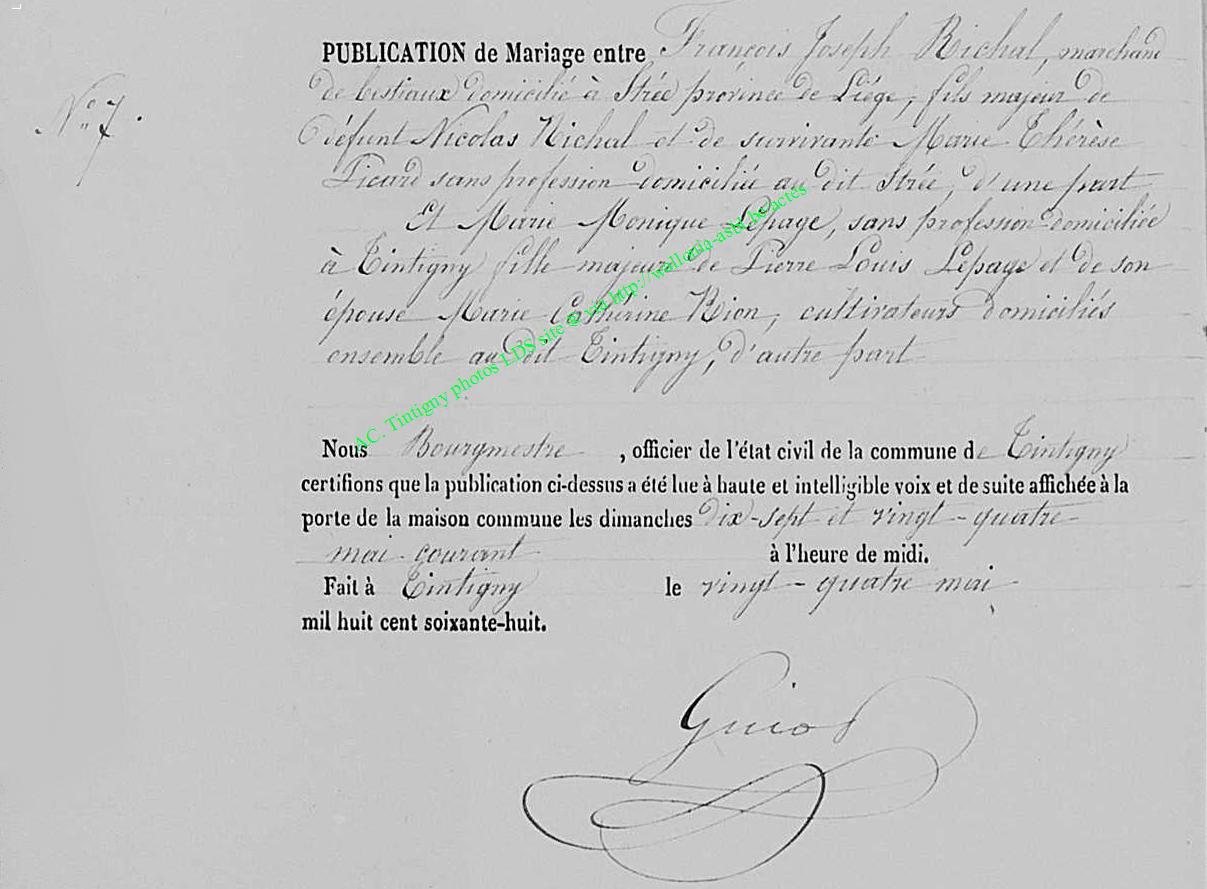 PUBLICATION de Mariage entre François Joseph Richal, marchand
de bestiaux domicilié à Strée province de Liége, fils majeur de
N° 7.
défunt Nicolas Richal et de survivante Marie Thérèse
Picard sans profession domiciliée au dit Strée, d'une part
Et Marie Monique Lepage, sans profession domiciliée
à Tintigny fille majeure de Pierre Louis Lepage et de son
épouse Marie Catherine Rion, cultivateurs domiciliés
ensemble au dit Tintigny, d'autre part
AC. Tintigny photos LDS site @ via http://wallonia-asbl.be/actes
Nous Bourgmestre, officier de l'état civil de la commune de Tintigny
certifions que la publication ci-dessus a été lue à haute et intelligible voix et de suite affichée à la
porte de la maison commune les dimanches dix-sept et vingt-quatre
mai courant à l'heure de midi.
Fait à Tintigny le vingt-quatre mai
mil huit cent soixante-huit.
Guiot